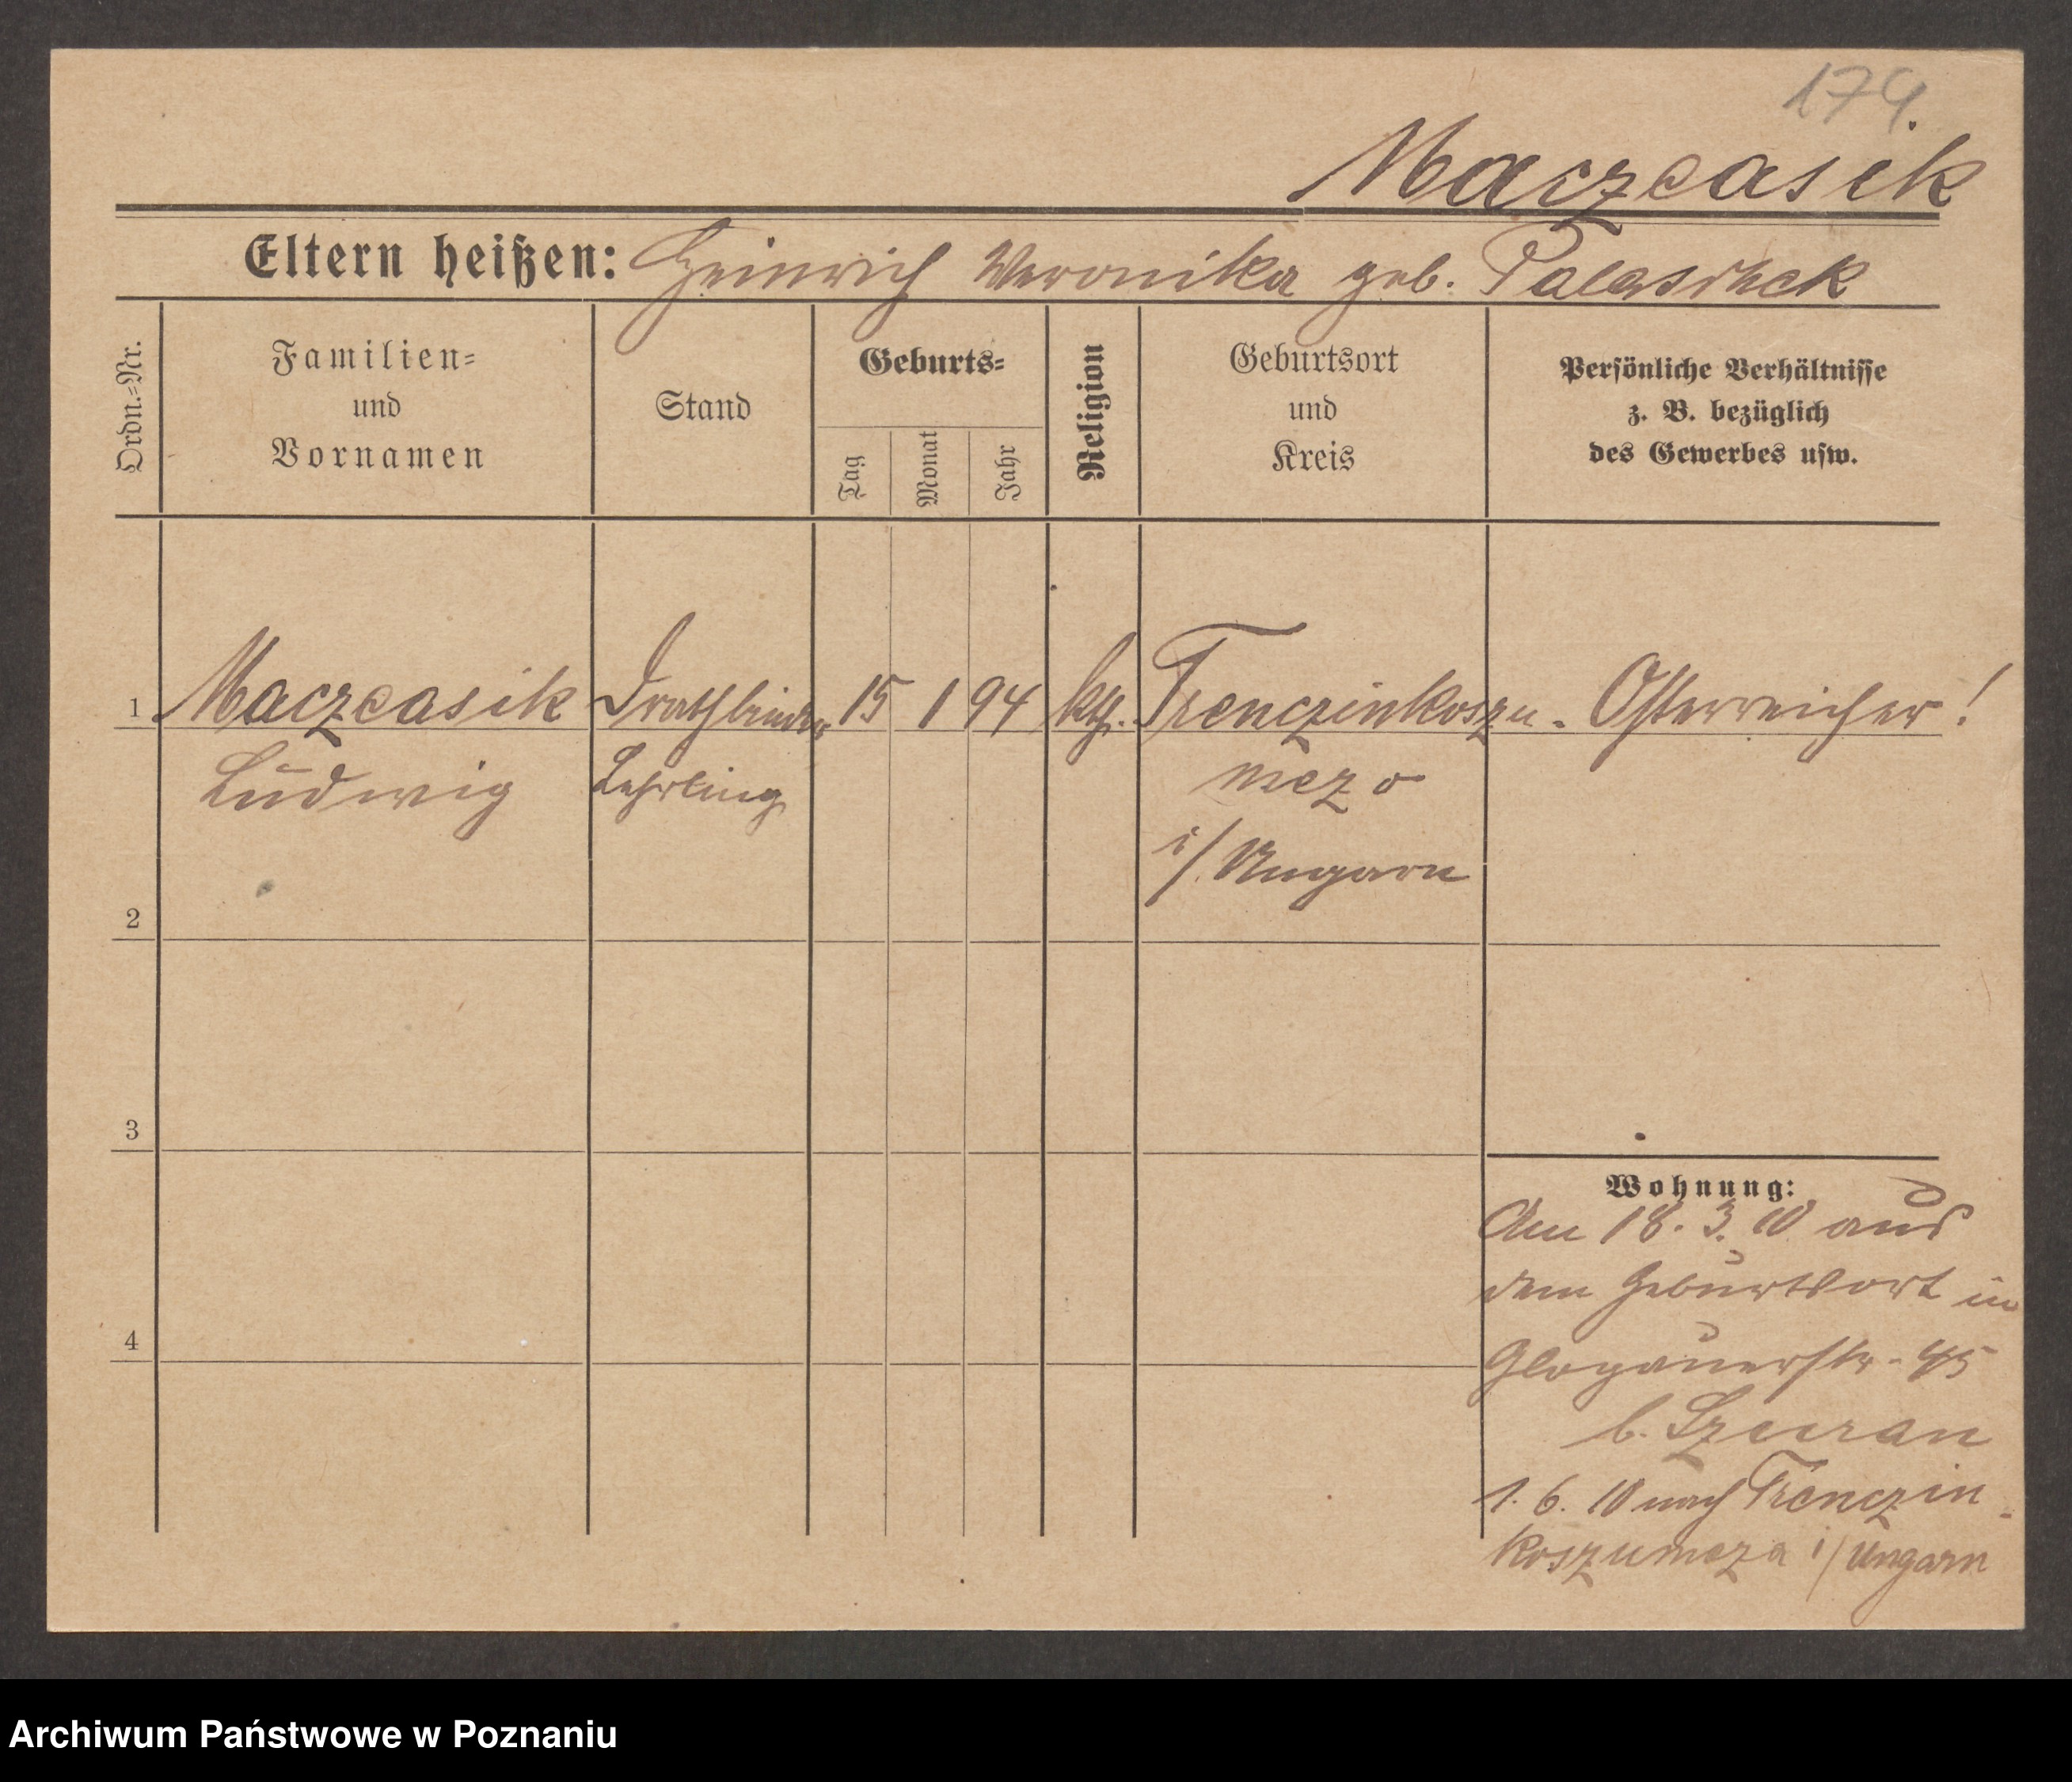 179.
Maczeasik
Eltern heißen: Heinrich Veronika geb.
Ordn.=Nr.
Familien=
und
Vornamen
Stand
Geburts=
Tag
Monat
Jahr
Religion
Geburtsort
und
Kreis
Persönliche Verhältnisse
z. B. bezüglich
des Gewerbes usw.
1 Maczeasik Drathbinder 15 1 94 kth. Trenczinkoszu- Österreicher!
Ludwig Lehrling mezo
i/Ungarn
2
3
4
Wohnung:
Am 18. 3. 10 aus
dem Geburtsort in
Glogauerstr. 45
b.
1. 6. 10 nach Trenczin-
koszumeza i/Ungarn
Archiwum Państwowe w Poznaniu